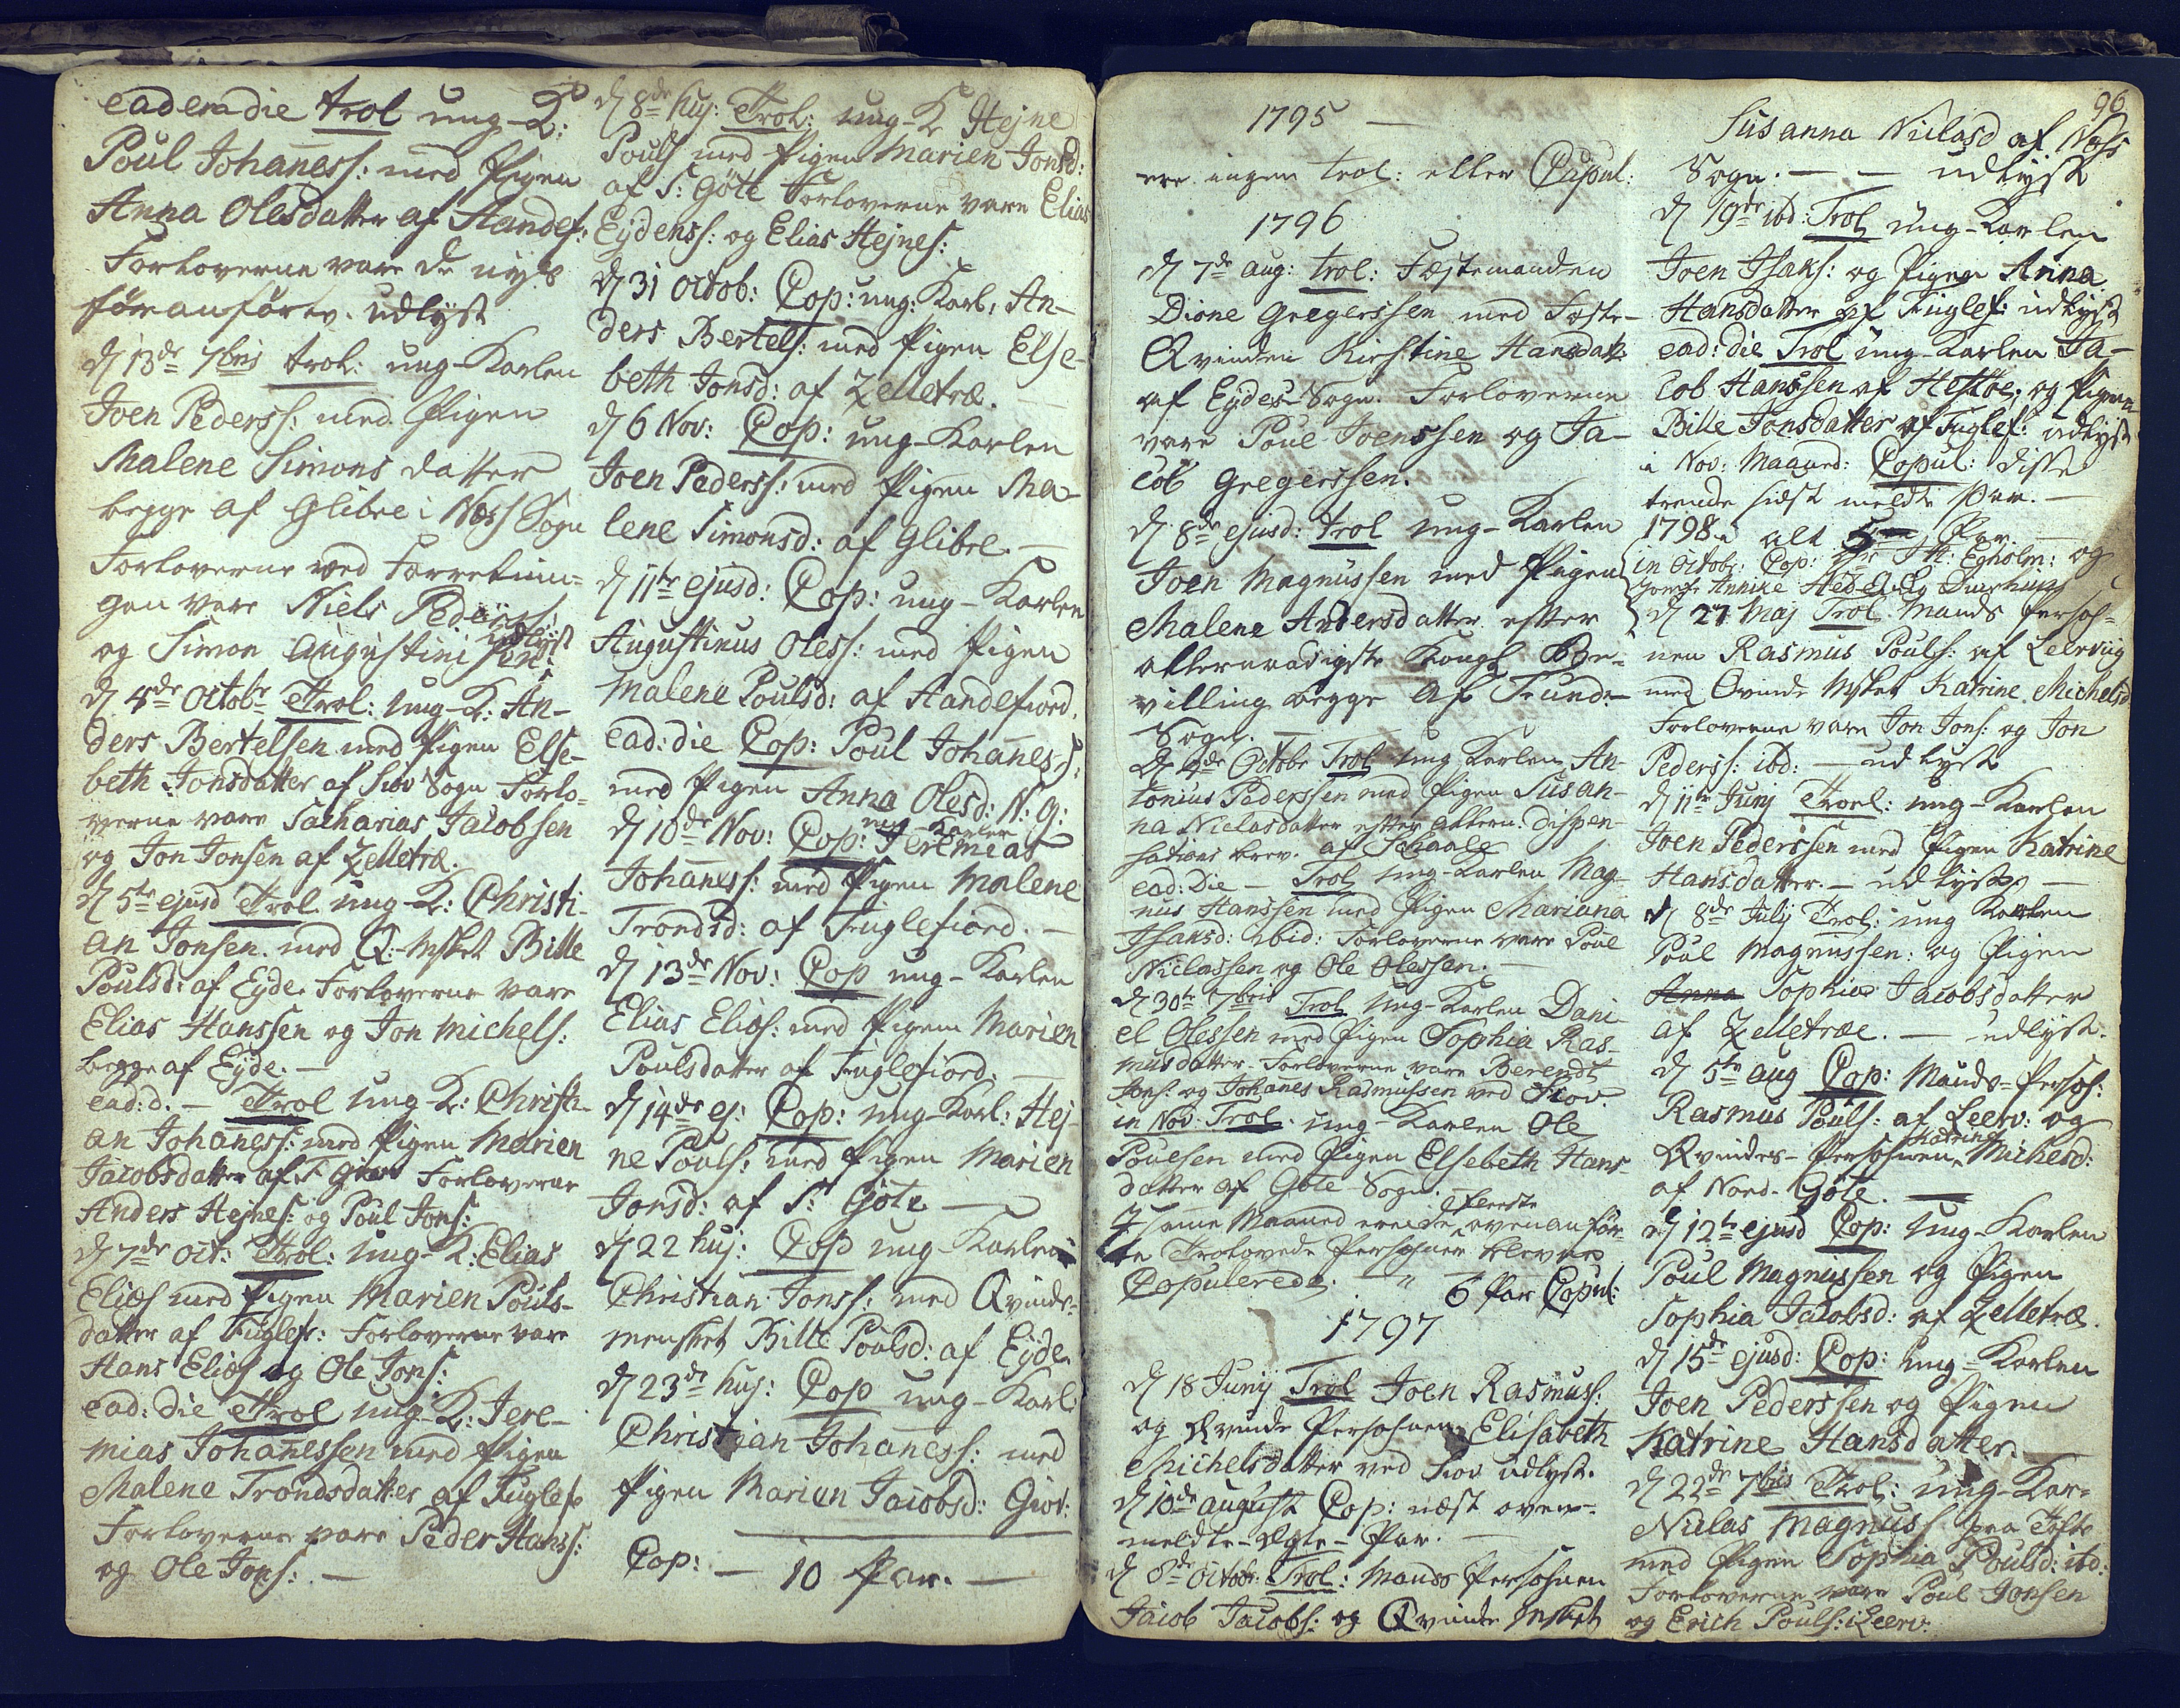 eadem die trol ung-K:
Poul Johaness: med Pigen
Anna Olesdatter af Andef:
Forloverne vare de nys
för anförte. udlyst
d 13de 7bris trol: ung-Karlen
Joen Peders: med Pigen
Malene Simons datter
begge af Glibre i Næss Sogn
Forloverne ved Forretnin-
gen vare Niels Peders:
og Simon Augustini sön: udlyst
d 4de Octobr Trol: ung-K: An-
ders Bertelsen med Pigen Else-
beth Jonsdatter af Siov Sogn Forlo-
verne vare Sacharias Jacobsen
og Jon Jonsen af Zelletræ.
d 5te ejusd Trol ung-K: Christi-
an Jonsen med Q:-Msket Bille
Poulsd: af Eyde. Forloverne vare
Elias Hanssen og Jon Michels:
begge af Eyde. —
ead: d. — Trol ung-K: Christi-
an Johaness: med Pigen Marien
Jacobsdatter af Forloverne
Anders Hejnes: og Poul Jons:
d 7de Oct: Trol: ung-K: Elias
Elias med Pigen Marien Pouls-
datter af Fuglef: Forloverne vare
Hans Elias og Ole Jons:
ead: die Trol ung-K: Jere-
mias Johanessen med Pigen
Malene Trondsdatter af Fuglef
Forloverne vare Peder Hanss:
og Ole Jons: —
d 8de huj: Trol: ung-K Hejne
Pouls med Pigen Marien Jonsd:
af S: Göte Forloverne vare Elias
Eydenss: og Elias Hejnes:
d 31 Octob: Cop: ung: Karl: An-
ders Bertels: med Pigen Else-
beth Jonsd: af Zelletræ. —
d 6 Nov: Cop: ung-Karlen
Joen Peders: med Pigen Ma-
lene Simonsd: af Glibre. —
d 11te ejusd: Cop: ung-Karlen
Augustinus Oless: med Pigen
Malene Poulsd: af Andefiord.
ead: die Cop: Poul Johaness:
med Pigen Anna Olesd: N: G:
d 10de Nov: Cop: ung-Karlen Jeremias
Johaness: med Pigen Malene
Trondsd: af Fuglefiord. —
d 13de Nov: Cop ung-Karlen
Elias Elias: med Pigen Marien
Poulsdatter af Fuglefiord. —
d 14de ej: Cop: ung-Karl: Hej-
ne Pouls: med Pigen Marien
Jonsd: af S: Göte —
d 22 huj: Cop ung-Karlen
Christian Jonss: med Qvinde-
mensket Bille Poulsd: af Eyde.
d 23de huj: Cop ung-Karl:
Christian Johaness: med
Pigen Marien Jacobsd: Giov:
Cop: — 10 Par. —
1795 —
ere ingen trol: eller Cupul:
1796
d 7de aug: trol: Fæstemanden
Dione Gregerssen med Fæste-
Qvinden Kirstine Hansdat:
af Eydes-Sogn. Forloverne
vare Poul Joenssen og Ja-
cob Gregerssen.
d 8de ejusd: trol ung-Karlen
Joen Magnussen med Pigen
Malene Andersdatter efter
allernaadigste Kongl Be-
villing begge af Funds-
Sogn. —
d 4de Octobr Trol ung Karlen An-
tonius Pedersen med Pigen Susan-
na Niclasdatter efter allern: dispen-
sations brev. af Schaale
ead: Die — Trol ung-Karlen Mag-
nus Hanssen med Pigen Mariana
Isaksd: ibid: Forloverne vare Poul
Niclassen og Ole Olessen. —
d 30te 7bris Trol ung-Karlen Dani-
el Olessen med Pigen Sophia Ras-
musdatter. Forloverne vare Berendt
Jons: og Johanes Rasmussen ved Siov.
in Nov. Trol. ung-Karlen Ole
Pouesen med Pigen Elsebeth Hans-
datter af Göte Sogn.
I samme Maaned ere de fleeste ovenanför-
te Trolovede Personer blevne
Copulerede. — " — 6 Par Copul:
1797
d 18 Junij Trol Joen Rasmuss:
og Qvinde Personen Elisabeth
Michelsdatter ved Siov udlyst.
d 10de august Cop: næst oven-
meldte-Ægte-Par. —
d 8de Octobr. Trol: Mands Personen
Jacob Jacobs: og Qvinde Msket
96
Susanna Niclasd af Næss
Sogn. — — udlyst
d 19de ibd: Trol ung-Karlen
Joen Isaks: og Pigen Anna
Hansdatter af Fuglef: udlyst
ead: die Trol ung-Karlen Ja-
cob Hanssen af Hestöe, og Pigen
Bille Jonsdatter af Fuglef: udlyst
i Nov: Maaned: Copul: disse
trende sidst meldte Par. —
1798. i alt 5 Par. —
in Octobr: Cop: Hr H: Egholm: og
Jomfr Annike Hed
d 27 Maj Trol Mands Perso-
nen Rasmus Pouls: af Leerviig
med Qvinde Msket Katrine Michelsd
Forloverne vare Jon Jons: og Jon
Peders: ibd: — udlyst
d 11te Junj Troel: ung-Karlen
Joen Pederssen med Pigen Katrine
Hansdatter. — udlyst —
d 8de Julij Trol: ung Karlen
Poul Magnussen: og Pigen
Anna Sophia Jacobsdatter
af Zelletræe. — udlyst.
d 5te aug Cop: Mands-Person:
Rasmus Pouls: af Leerv: og
Qvindes-Personen Katrine Michelsd:
af Nord-Göte. —
d 12te ejusd Cop: ung-Karlen
Poul Magnussen og Pigen
Sophia Jacobsd: af Zelletræ.
d 15de ejusd: Cop: ung-Karlen
Joen Pederssen og Pigen
Katrine Hansdatter. —
d 22de 7bris Trol: ung-Kar-
Niclas Magnuss fra Tofte
med Pigen Sophia Poulsd: ibd:
Forloverne vare Poul Jonsen
og Erich Pouls: i Leerv: